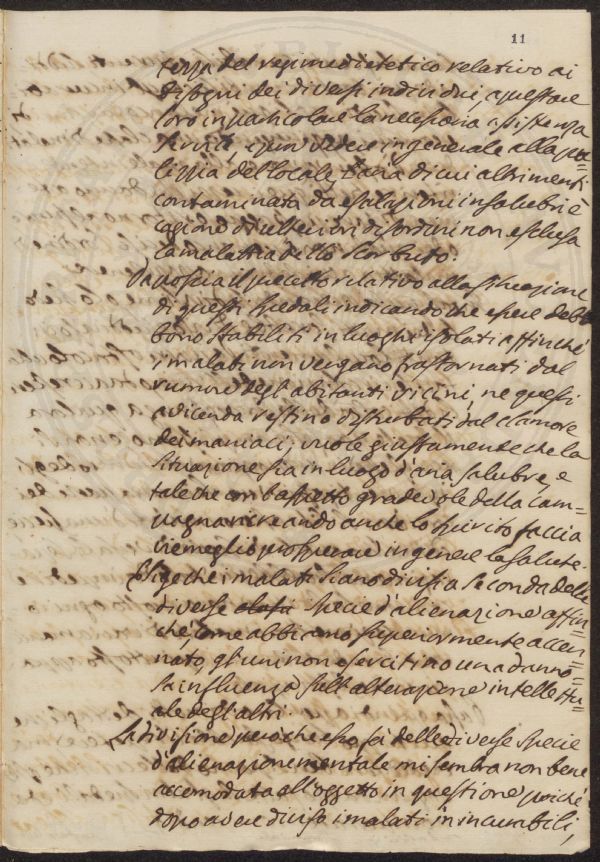 11
terza del regime dietetico relativo ai
bisogni dei diversi individui, a prestare
loro in particolare la necessaria assistenza
servile, e provvedere in generale alla pu=
lizzia del locale, l'aria di cui altrimenti
contaminata da esalazioni insalubri è
cagione d'ulteriori disordini non esclusa
la malattia dello Scorbuto.
Dà poscia il precetto relativo alla situazione
di questi spedali indicando che esse deb=
bono stabiliti in luoghi isolati affinché
i malati non vengano frastornati dal
rumore degl'abitanti vicini, ne questi
a vicenda restino disturbati dal clamore
dei maniaci; vuole giustamente che la
situazione sia in luogo d'aria salubre, e
tale che con l'aspetto gradevole della Cam=
pagna ricreando anche lo spirito faccia
viemeglio prosperare in genere la salute.
Esige che i malati siano divisi a seconda delle
diverse specie d'alienazione affin=
ché come abbiamo superiormente accen=
nato, gl'uni non esercitino una danno=
sa influenza sull'alterazione intellettu=
ale degl'altri.
La divisione però che esso fà delle diverse specie
d'alienazione mentale mi sembra non bene
accomodata all'oggetto in questione poiché
dopo avere divisi i malati in incurabili,